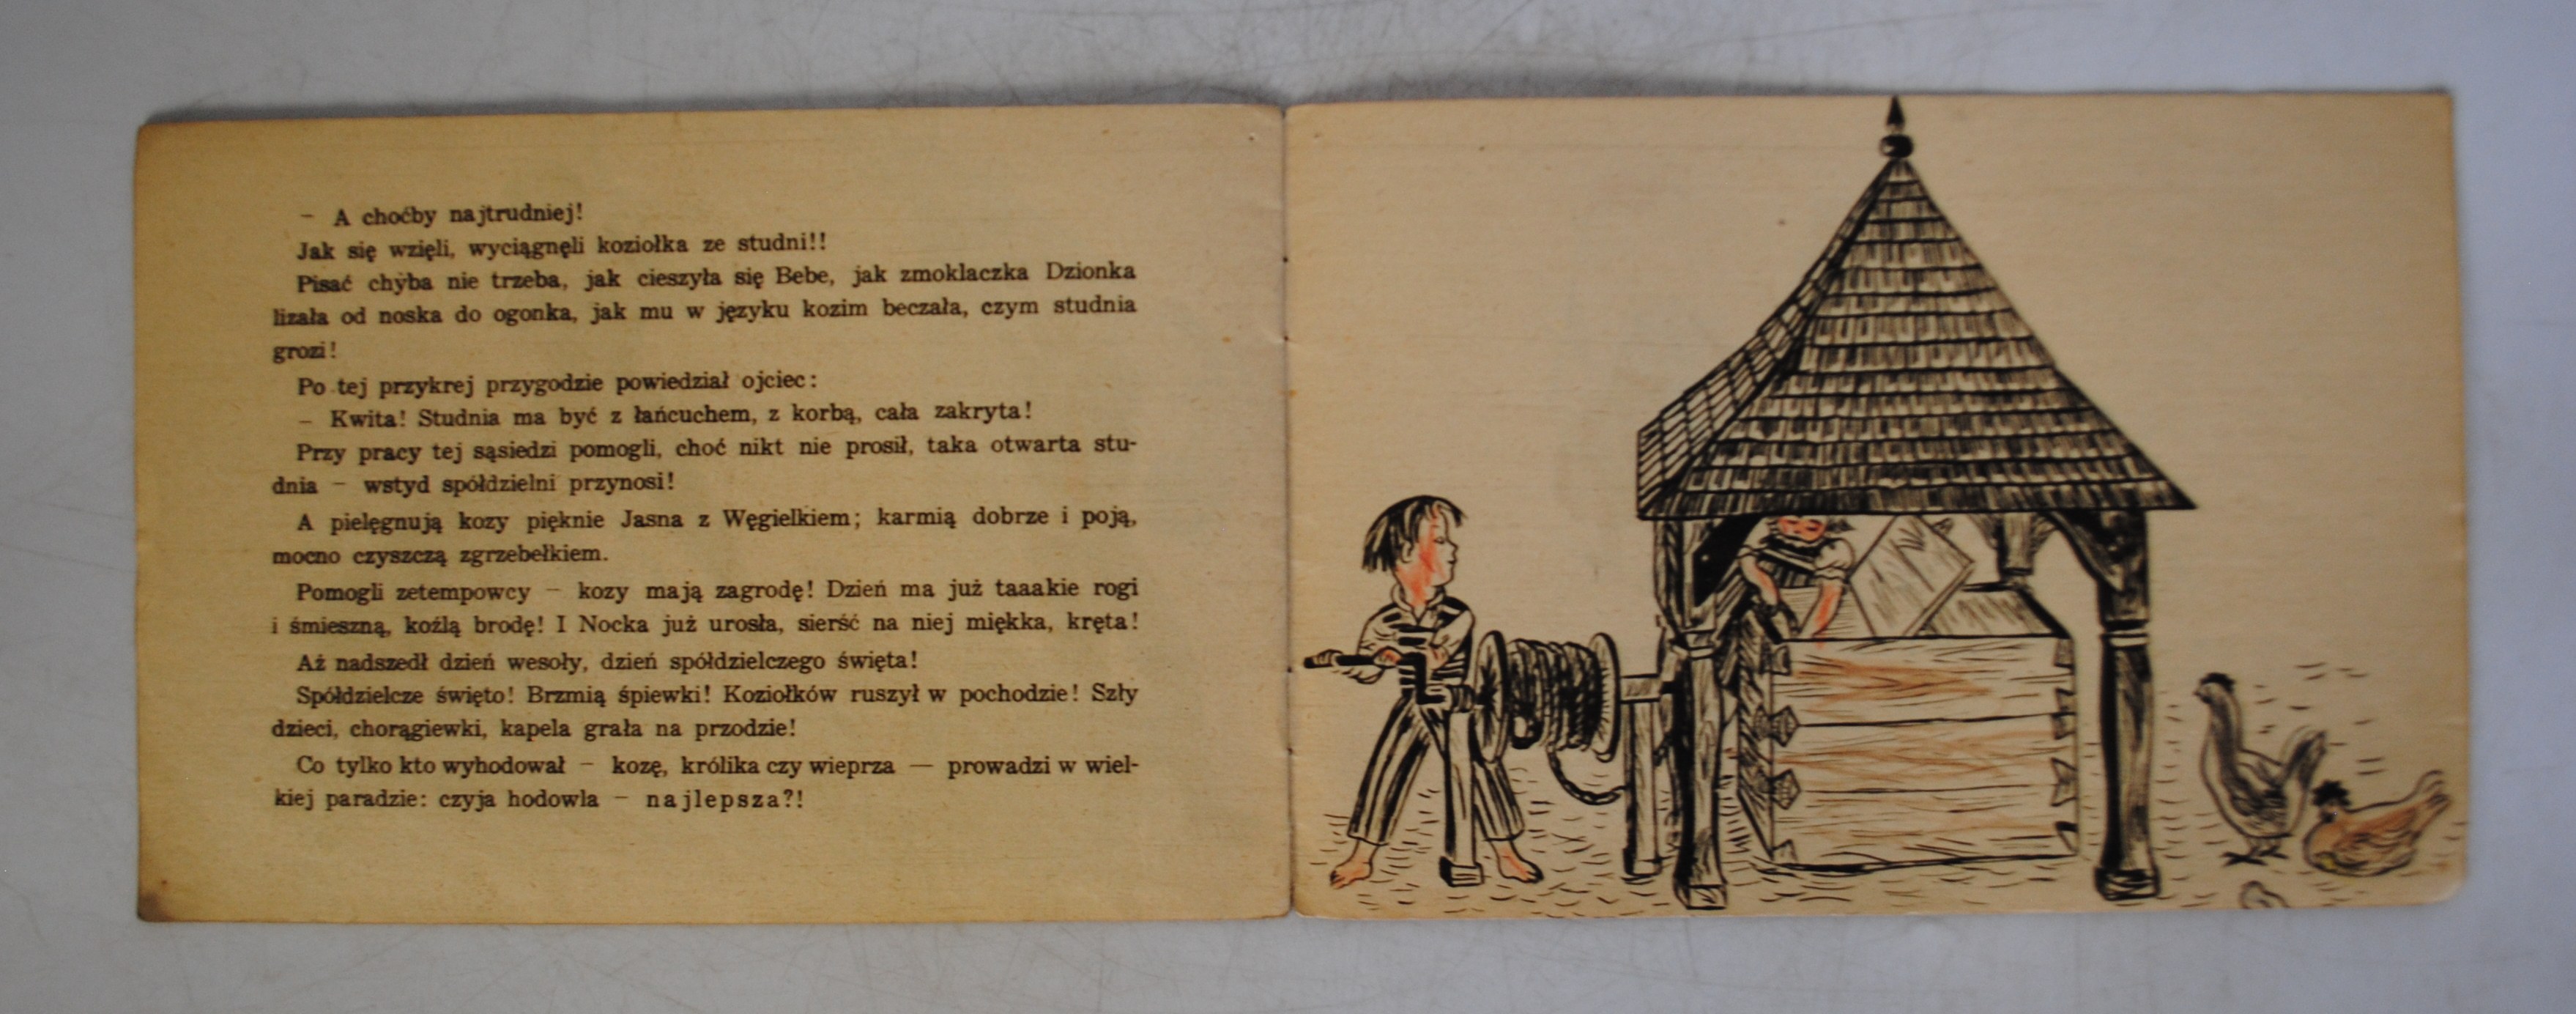 – A choćby najtrudniej!
Jak się wzięli, wyciągnęli koziołka ze studni!!
Pisać chyba nie trzeba, jak cieszyła się Bebe, jak zmoklaczka Dzionka
lizała od noska do ogonka, jak mu w języku kozim beczała, czym studnia
grozi!
Po tej przykrej przygodzie powiedział ojciec:
– Kwita! Studnia ma być z łańcuchem, z korbą, cała zakryta!
Przy pracy tej sąsiedzi pomogli, choć nikt nie prosił, taka otwarta stu-
dnia – wstyd spółdzielni przynosi!
A pielęgnują kozy pięknie Jasna z Węgielkiem; karmią dobrze i poją,
mocno czyszczą zgrzebełkiem.
Pomogli zetempowcy – kozy mają zagrodę! Dzień ma już taaakie rogi
i śmieszną, koźlą brodę! I Nocka już urosła, sierść na niej miękka, kręta!
Aż nadszedł dzień wesoły, dzień spółdzielczego święta!
Spółdzielcze święto! Brzmią śpiewki! Koziołków ruszył w pochodzie! Szły
dzieci, chorągiewki, kapela grała na przodzie!
Co tylko kto wyhodował – kozę, królika czy wieprza — prowadzi w wiel-
kiej paradzie: czyja hodowla – najlepsza?!